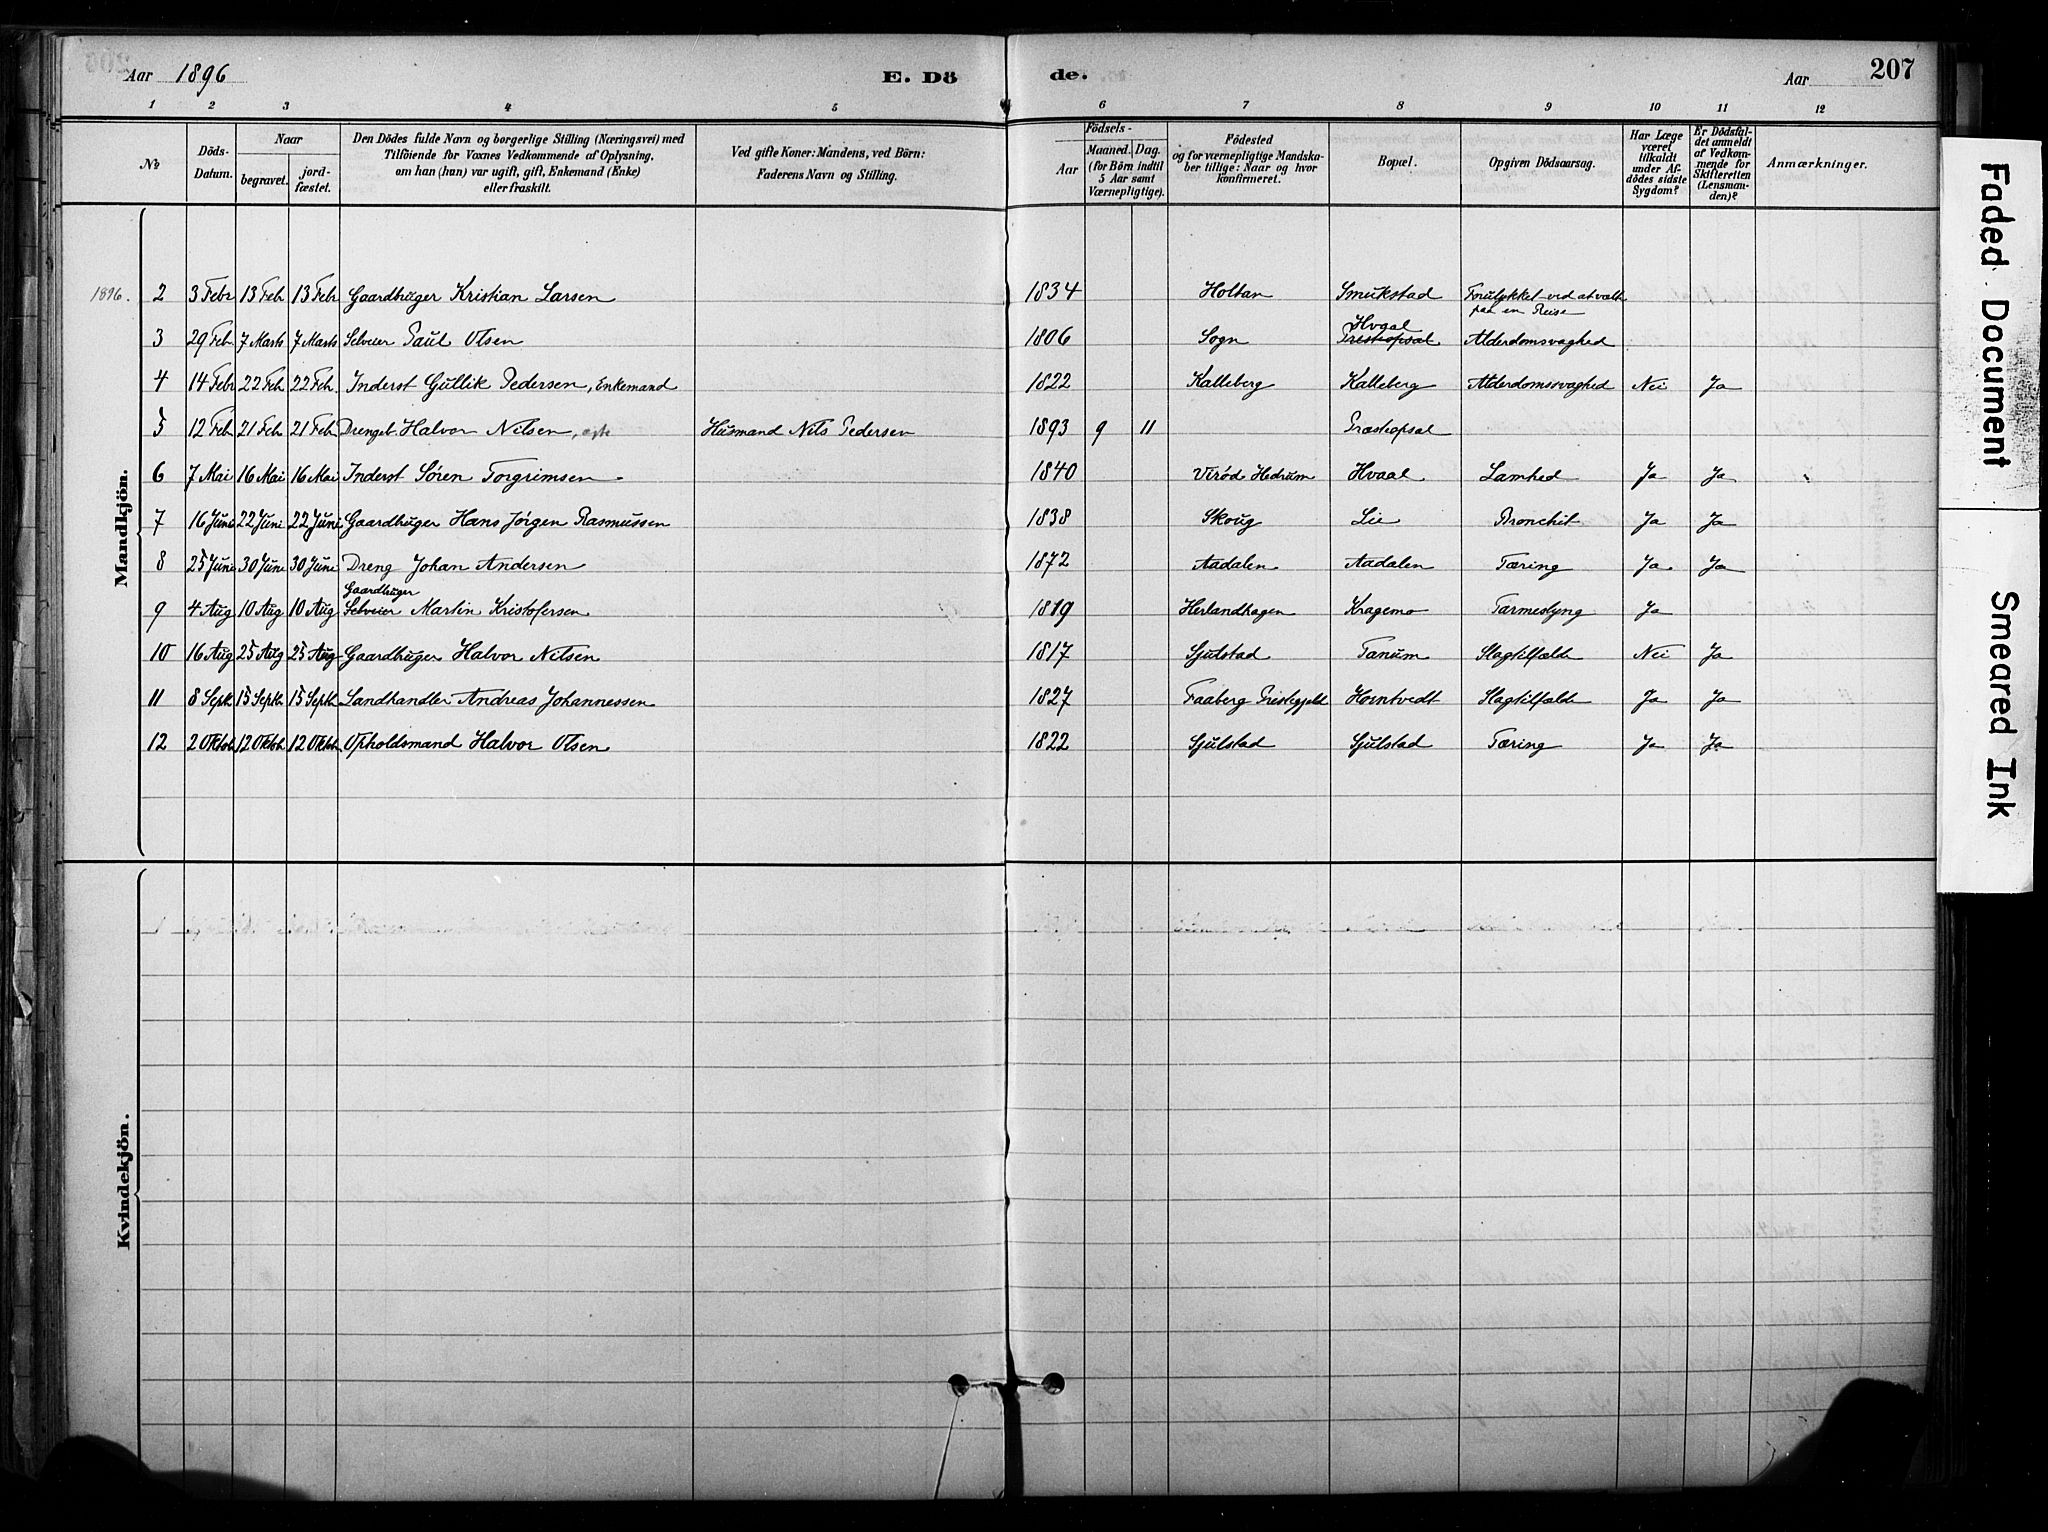 Aar 1896 E. Dö de. Aar 207
1 2 3 4 5 6 7 8 9 10 11 12
No
Döds-Datum.
Naar
begravet. jord-fæstet.
Den Dödes fulde Navn og borgerlige Stilling (Næringsvei) med
Tilföiende for Voxnes Vedkommende af Oplysning,
om han (hun) var ugift, gift, Enkemand (Enke)
eller fraskilt.
Ved gifte Koner: Mandens, ved Börn:
Faderens Navn og Stilling.
Födsels-
Aar
Maaned. Dag.
(for Börn indtil
5 Aar samt
Værnepligtige).
Födested
og for værnepligtige Mandska-
ber tillige: Naar og hvor
konfirmeret.
Bopæl.
Opgiven Dödsaarsag.
Har Læge
været
tilkaldt
under Af-
dödes sidste
Sygdom?
Er Dödsfal-
det anmeldt
af Vedkom-
mende for
Skifteretten
(Lensman-
den)?
Anmærkninger.
Mandkjön.
1896. 2 3 Febr 13 Feb 13 Feb Gaardbruger Kristian Larsen 1834 Holtan Smukstad Forulykket ved at vælte
paa en Reise
Hvaal
3 29 Feb. 7 Marts 7 Marts Selveier Paul Olsen 1806 Sogn Prestiopsal Alderdomsvaghed
4 14 Febr 22 Feb 22 Feb. Inderst Gullik Pedersen, Enkemand 1822 Kalleberg Kalleberg Alderdomssvaghed Nei Ja
5 12 Feb 21 Feb 21 Feb Drengeb. Halvor Nilsen, Husmand Nils Pedersen 1893 9 11 Præstiopsal
6 7 Mai 16 Mai 16 Mai Inderst Søren Torgrimsen 1840 Virød Hedrum Hvaal Lamhed Ja Ja
7 16 Juni 22 Juni 22 Juni Gaardbruger Hans Jørgen Rasmussen 1838 Skoug Lie Bronchit Ja Ja
8 25 Juni 30 Juni 30 Juni Dreng Johan Andersen 1872 Aadalen Aadalen Tæring Ja Ja
Gaardbruger
9 4 Aug 10 Aug 10 Aug Selveier Martin Kristofersen 1819 Herlandhagen Kragemo Tarmeslyng Ja
10 16 Aug 25 Aug 25 Aug Gaardbruger Halvor Nilsen 1817 Sjulstad Tanum Slagtilfælde Nei Ja
11 8 Septb 15 Septb 15 Septb Landhandler Andreas Johannessen 1827 Faaberg Prestegjeld Horntvedt Slagtilfælde Ja Ja
12 2 Oktob 12 Oktob. 12 Oktob. Opholdsmand Halvor Olsen 1822 Sjulstad Sjulstad Tæring Ja Ja
Kvindekjön.
Faded Document
Smeared Ink